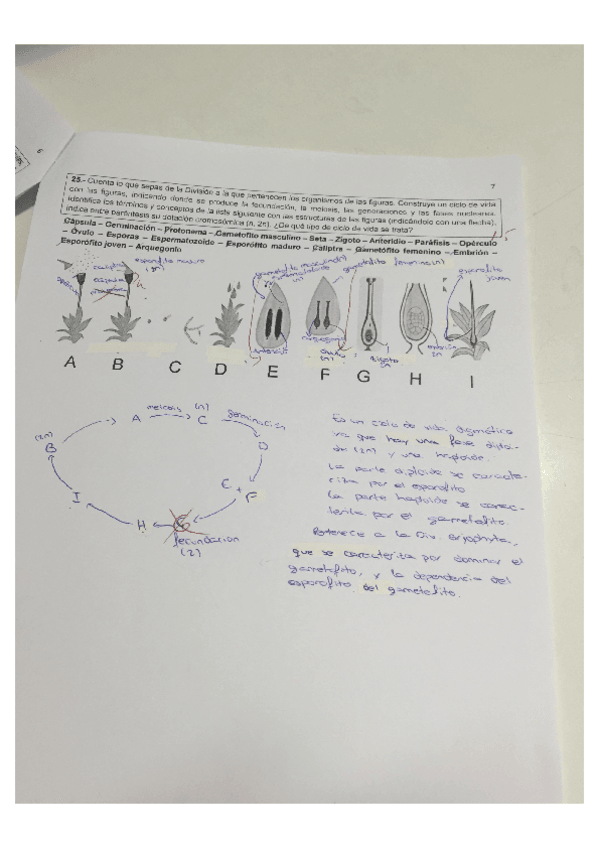 7
25.- Cuenta lo que sepas de la División a la que pertenecen los organismos de las figuras. Construye un ciclo de vida
con las figuras, indicando dónde se produce la fecundación, la meiosis, las generaciones y las fases nucleares.
Identifica los términos y conceptos de la lista siguiente con las estructuras de las figuras (indicándolo con una flecha),
indica entre paréntesis su dotación cromosómica (n, 2n). ¿De qué tipo de ciclo de vida se trata?
Cápsula – Germinación – Protonema – Gametofito masculino – Seta – Zigoto – Anteridio – Paráfisis – Opérculo
– Óvulo – Esporas – Espermatozoide – Esporófito maduro – Caliptra – Gametófito femenino – Embrión –
Esporófito joven – Arquegonio
esporofito maduro
(2n)
gametofito masculino (n)
gametofito femenino (n)
esporofito
joven
caliptra
capsula
anteridio
zigoto
embrión
A B C D E F G H I
A meiosis (n) C germinación
(2n)
B
D
C + F
I
H
G
fecundación
(2)
Es un ciclo de vida digenético
ya que hay una fase diploi-
de (2n) y una haploide.
La parte diploide se caracte-
riza por el esporofito
La parte haploide se carac-
teriza por el gametofito.
Pertenece a la Div. Bryophyta,
que se caracteriza por dominar el
gametofito, y la dependencia del
esporofito del gametofito.